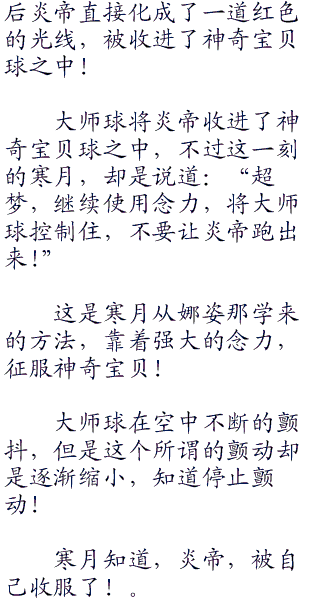 后炎帝直接化成了一道红色
的光线，被收进了神奇宝贝
球之中！
大师球将炎帝收进了神
奇宝贝球之中，不过这一刻
的寒月，却是说道：“超
梦，继续使用念力，将大师
球控制住，不要让炎帝跑出
来！”
这是寒月从娜姿那学来
的方法，靠着强大的念力，
征服神奇宝贝！
大师球在空中不断的颤
抖，但是这个所谓的颤动却
是逐渐缩小，知道停止颤
动！
寒月知道，炎帝，被自
己收服了！。